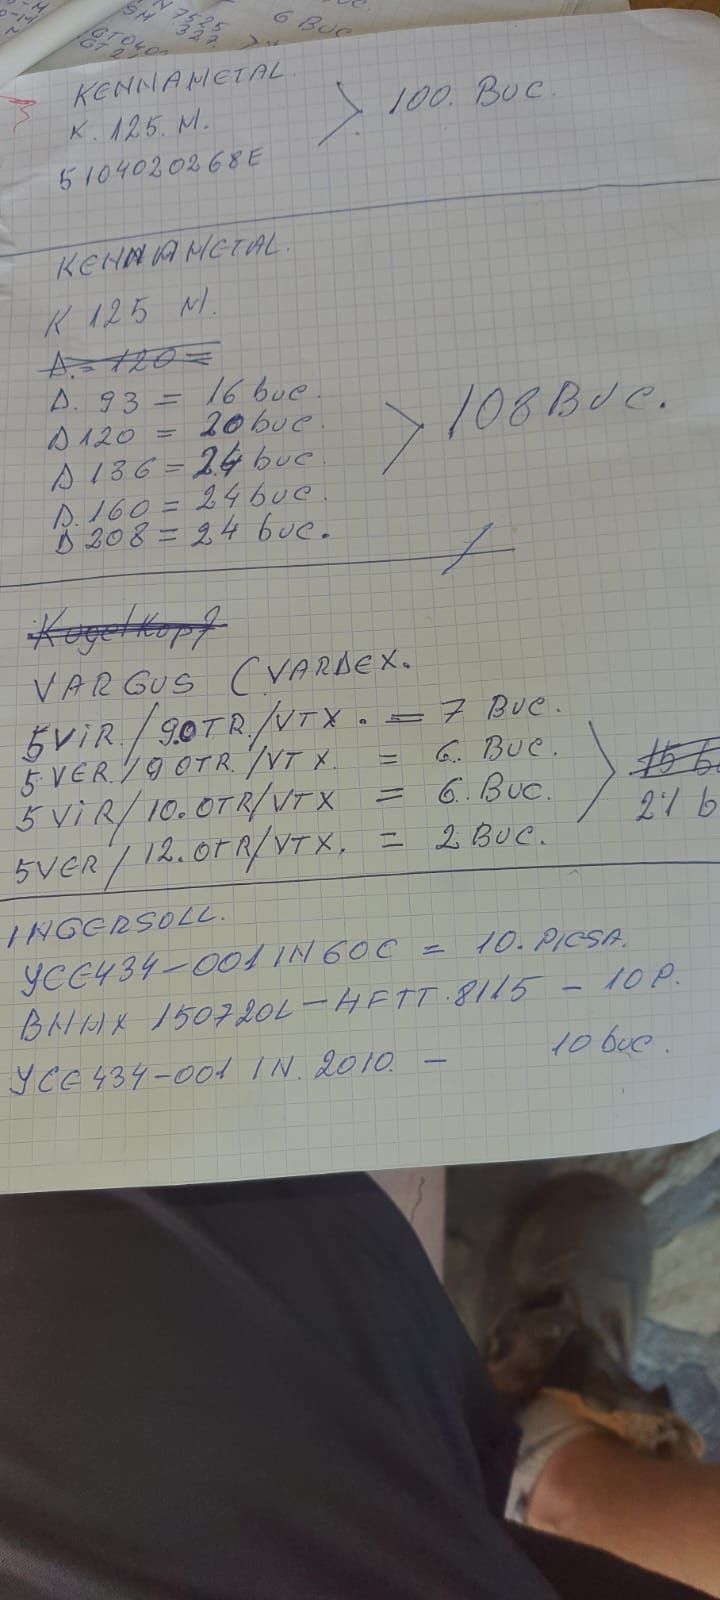 6 BUC
KENNAMETAL
K. 125. M. > 100. BUC.
5104020268E
KENNAMETAL.
K 125 M.
D. = 120 =
D. 93 = 16 buc.
D 120 = 20 buc.
D 136 = 24 buc. > 108 BUC.
D. 160 = 24 buc.
D 208 = 24 buc.
Kugelkopf
VARGUS (VARDEX.
5ViR / 9.0TR./VTX. = 7 BUC.
5 VER / 9 0TR. /VTX = 6. BUC.
5 ViR / 10.0TR/VTX = 6. BUC. > 21 b
5VER / 12.0TR/VTX. = 2 BUC.
INGERSOLL.
YCE434-001 IN60C = 10. PIESA.
BHHX 150720L - HFTT. 8115 - 10 P.
YCE434-001 IN. 2010. - 10 buc.